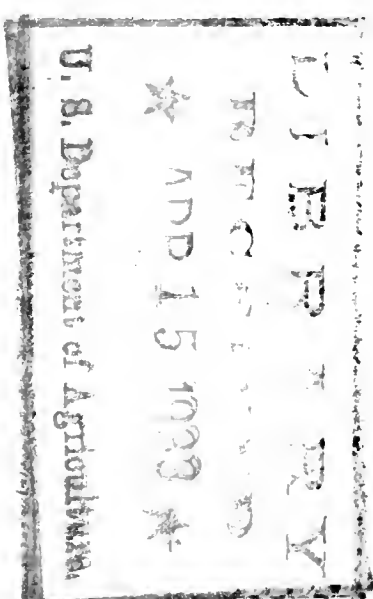 LIBRARY
RECEIVED
* APR 15 *
U. S. Department of Agriculture